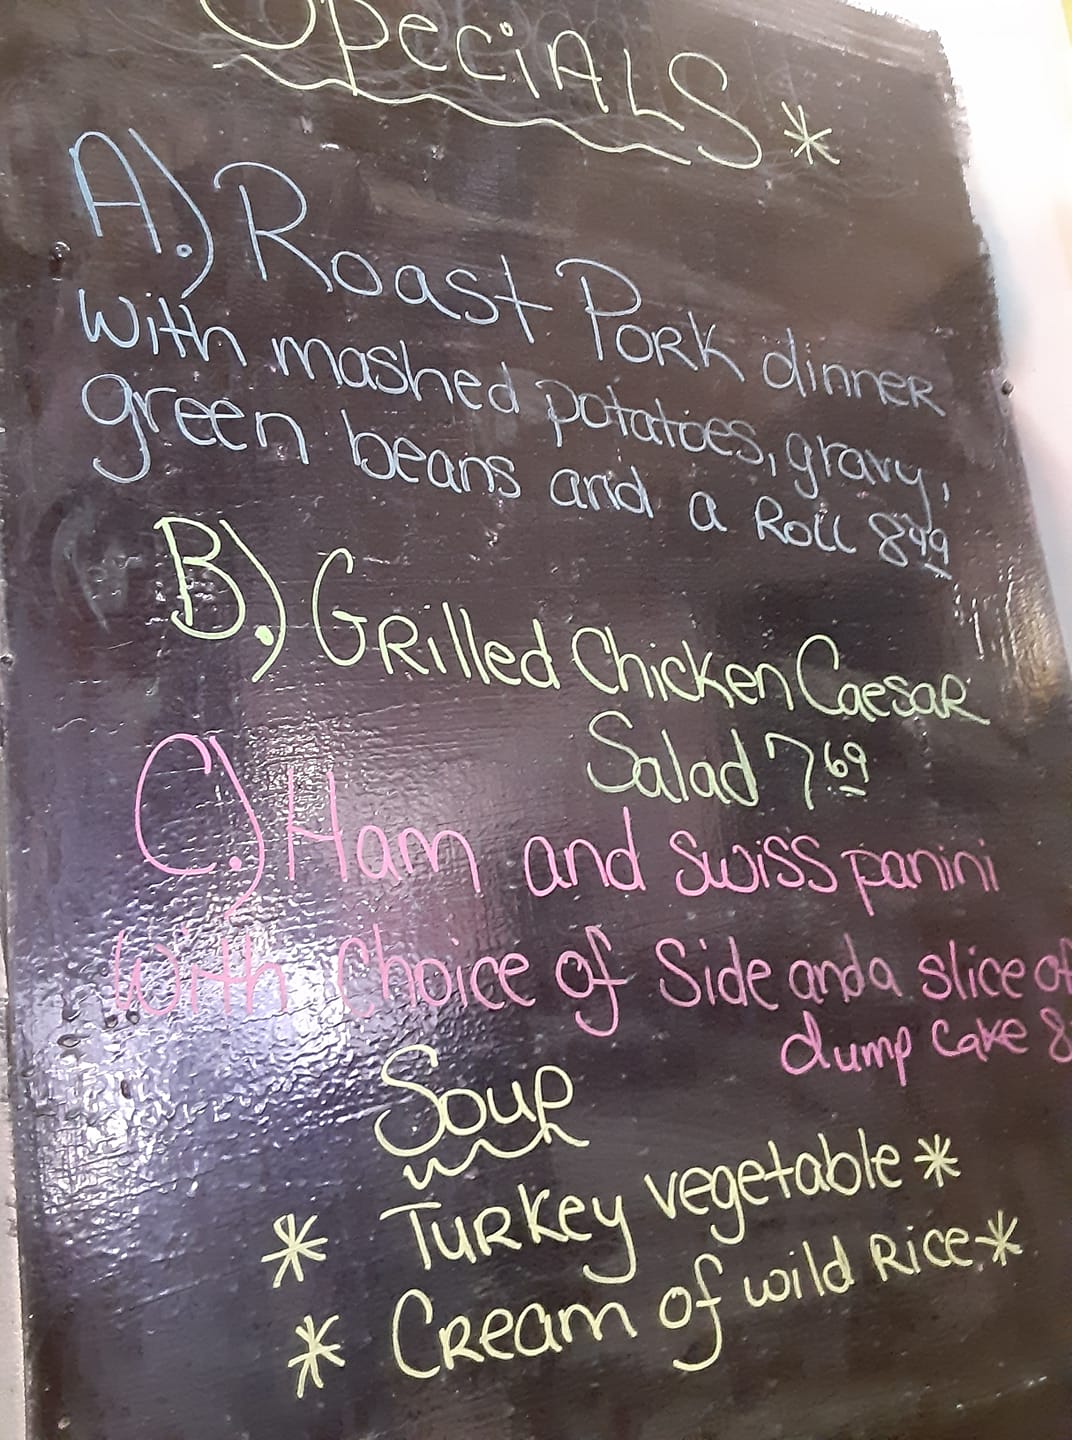 Specials *
A.) Roast Pork dinner
with mashed potatoes, gravy,
green beans and a Roll 8.49
B.) Grilled Chicken Caesar
Salad 7.69
C.) Ham and swiss panini
With Choice of Side and a slice of
dump Cake 8
Soup
* Turkey vegetable *
* Cream of wild Rice *